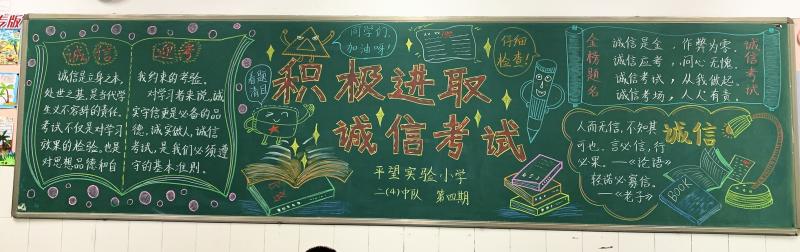 诚信迎考
诚信是立身之本,
处世之基,是当代学
生义不容辞的责任。
考试不仅是对学习
效果的检验,也是
对思想品德和自
我约束的考验。
对学习者来说,诚
实守信更是必备的品
德。诚实做人,诚信
考试,是我们必须遵
守的基本准则。
看题
清目
同学们,
加油呀!
仔细
检查!
积极进取
诚信考试
平望实验小学
二(4)中队 第四期
金榜题名
诚信是金,作弊为零。
诚信应考,问心无愧。
诚信考试,从我做起。
诚信考场,人人有责。
诚信考试
人而无信,不知其
可也。言必信,行
必果。——《论语》
轻诺必寡信。
——《老子》
诚信
Book